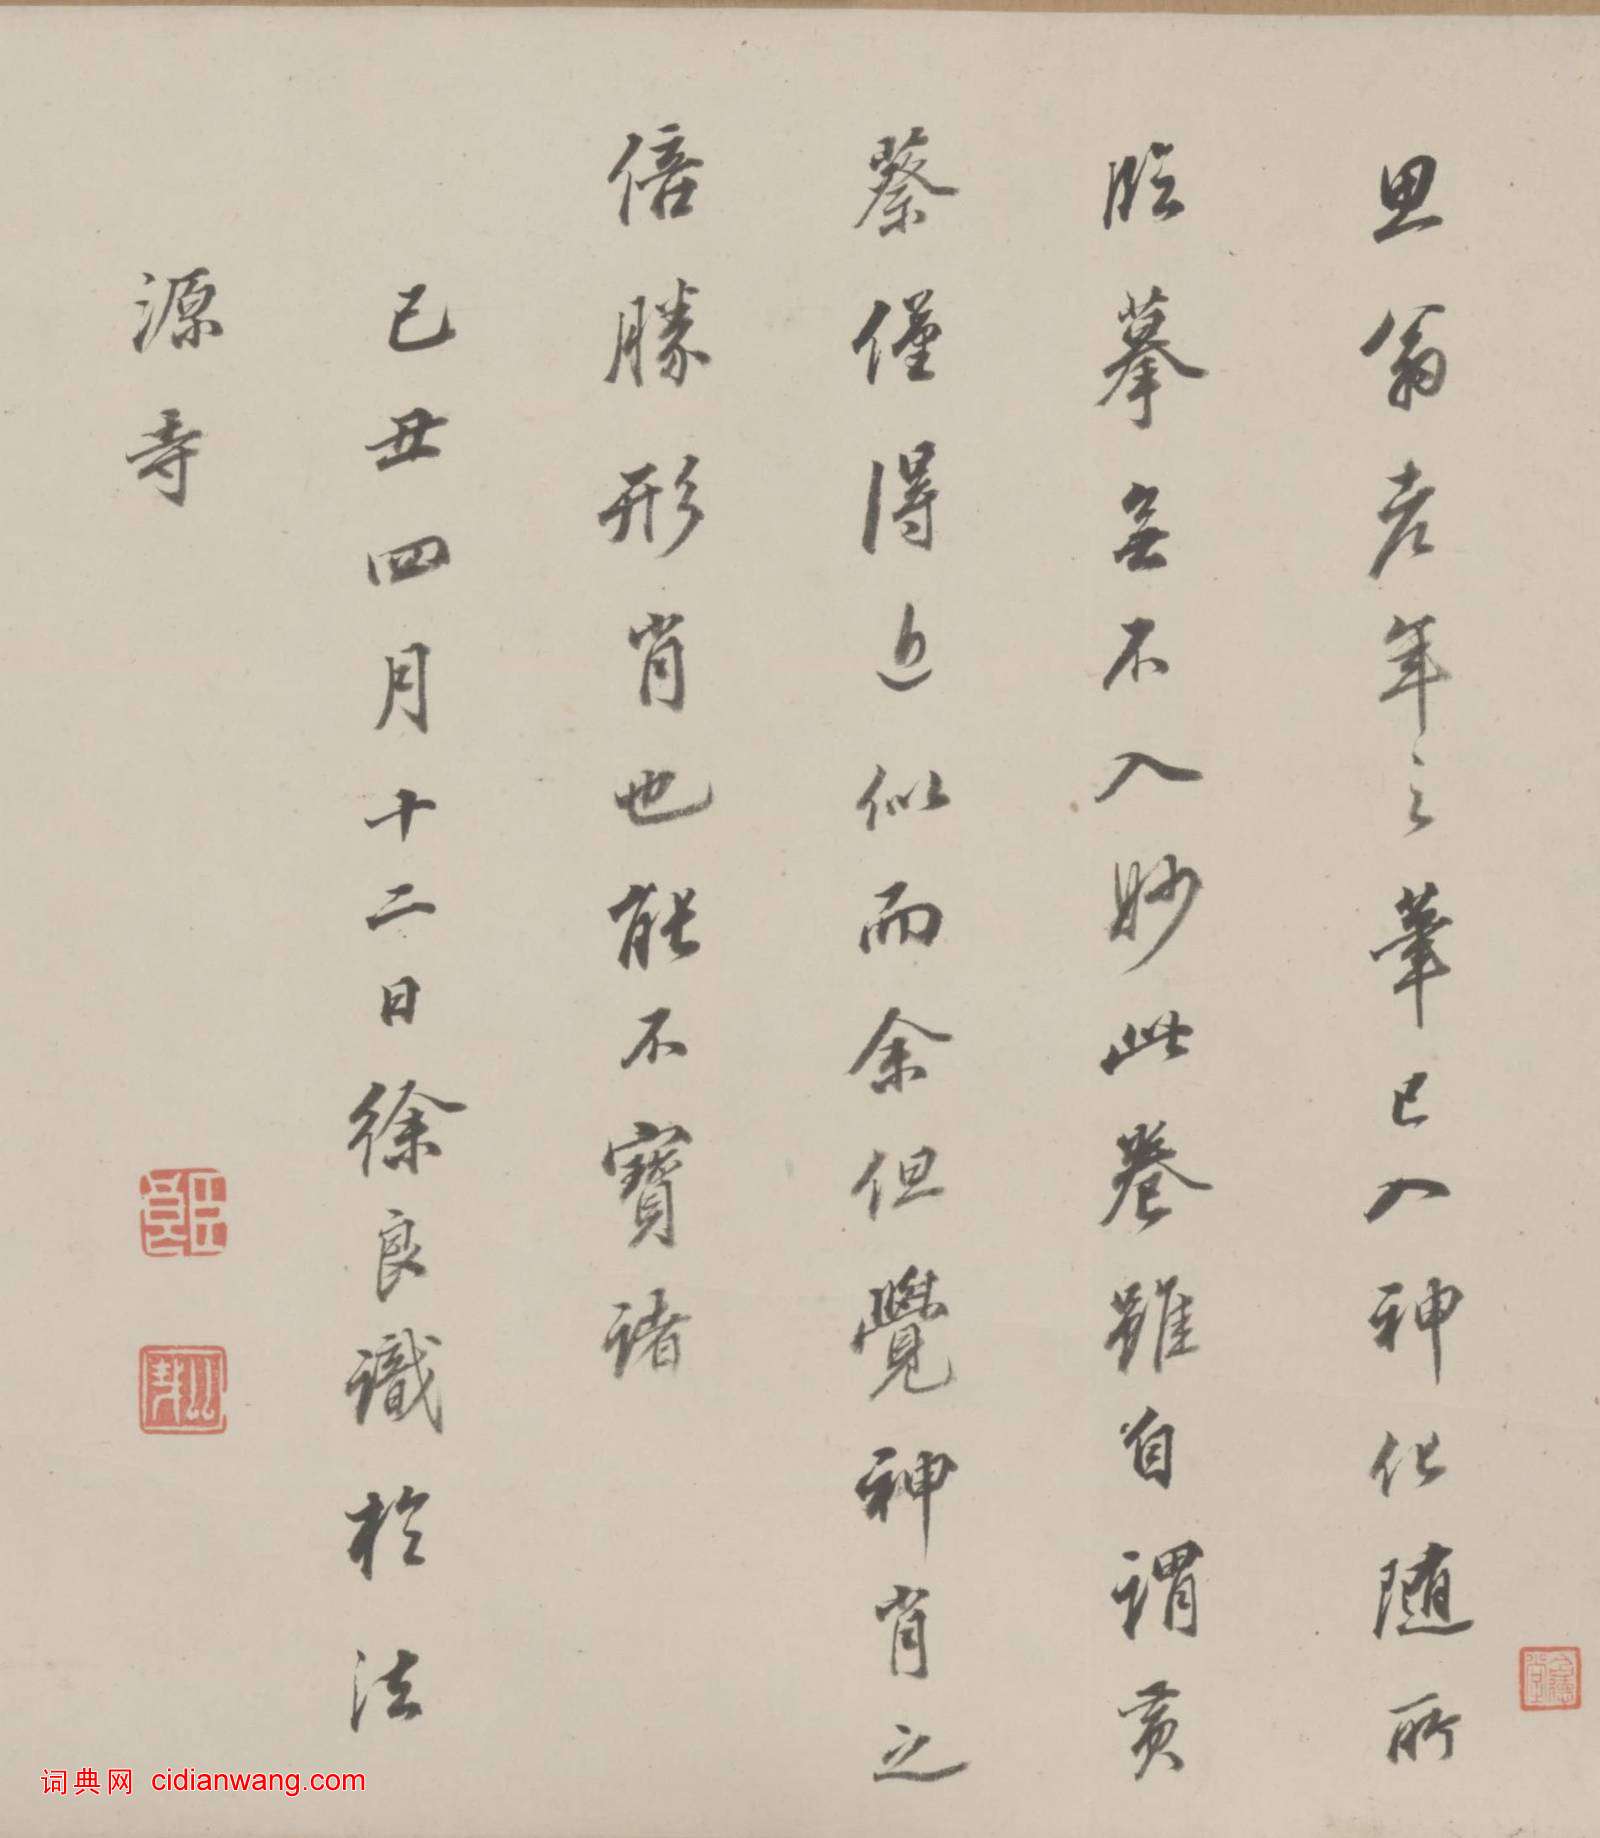 思翁老年之筆已入神化随所
臨摹無不入妙此卷雖自謂黄
蔡僅得近似而余但覺神肖之
倍勝形肖也能不寶諸
己丑四月十二日徐良識於法
源寺
词典网 cidianwang.com